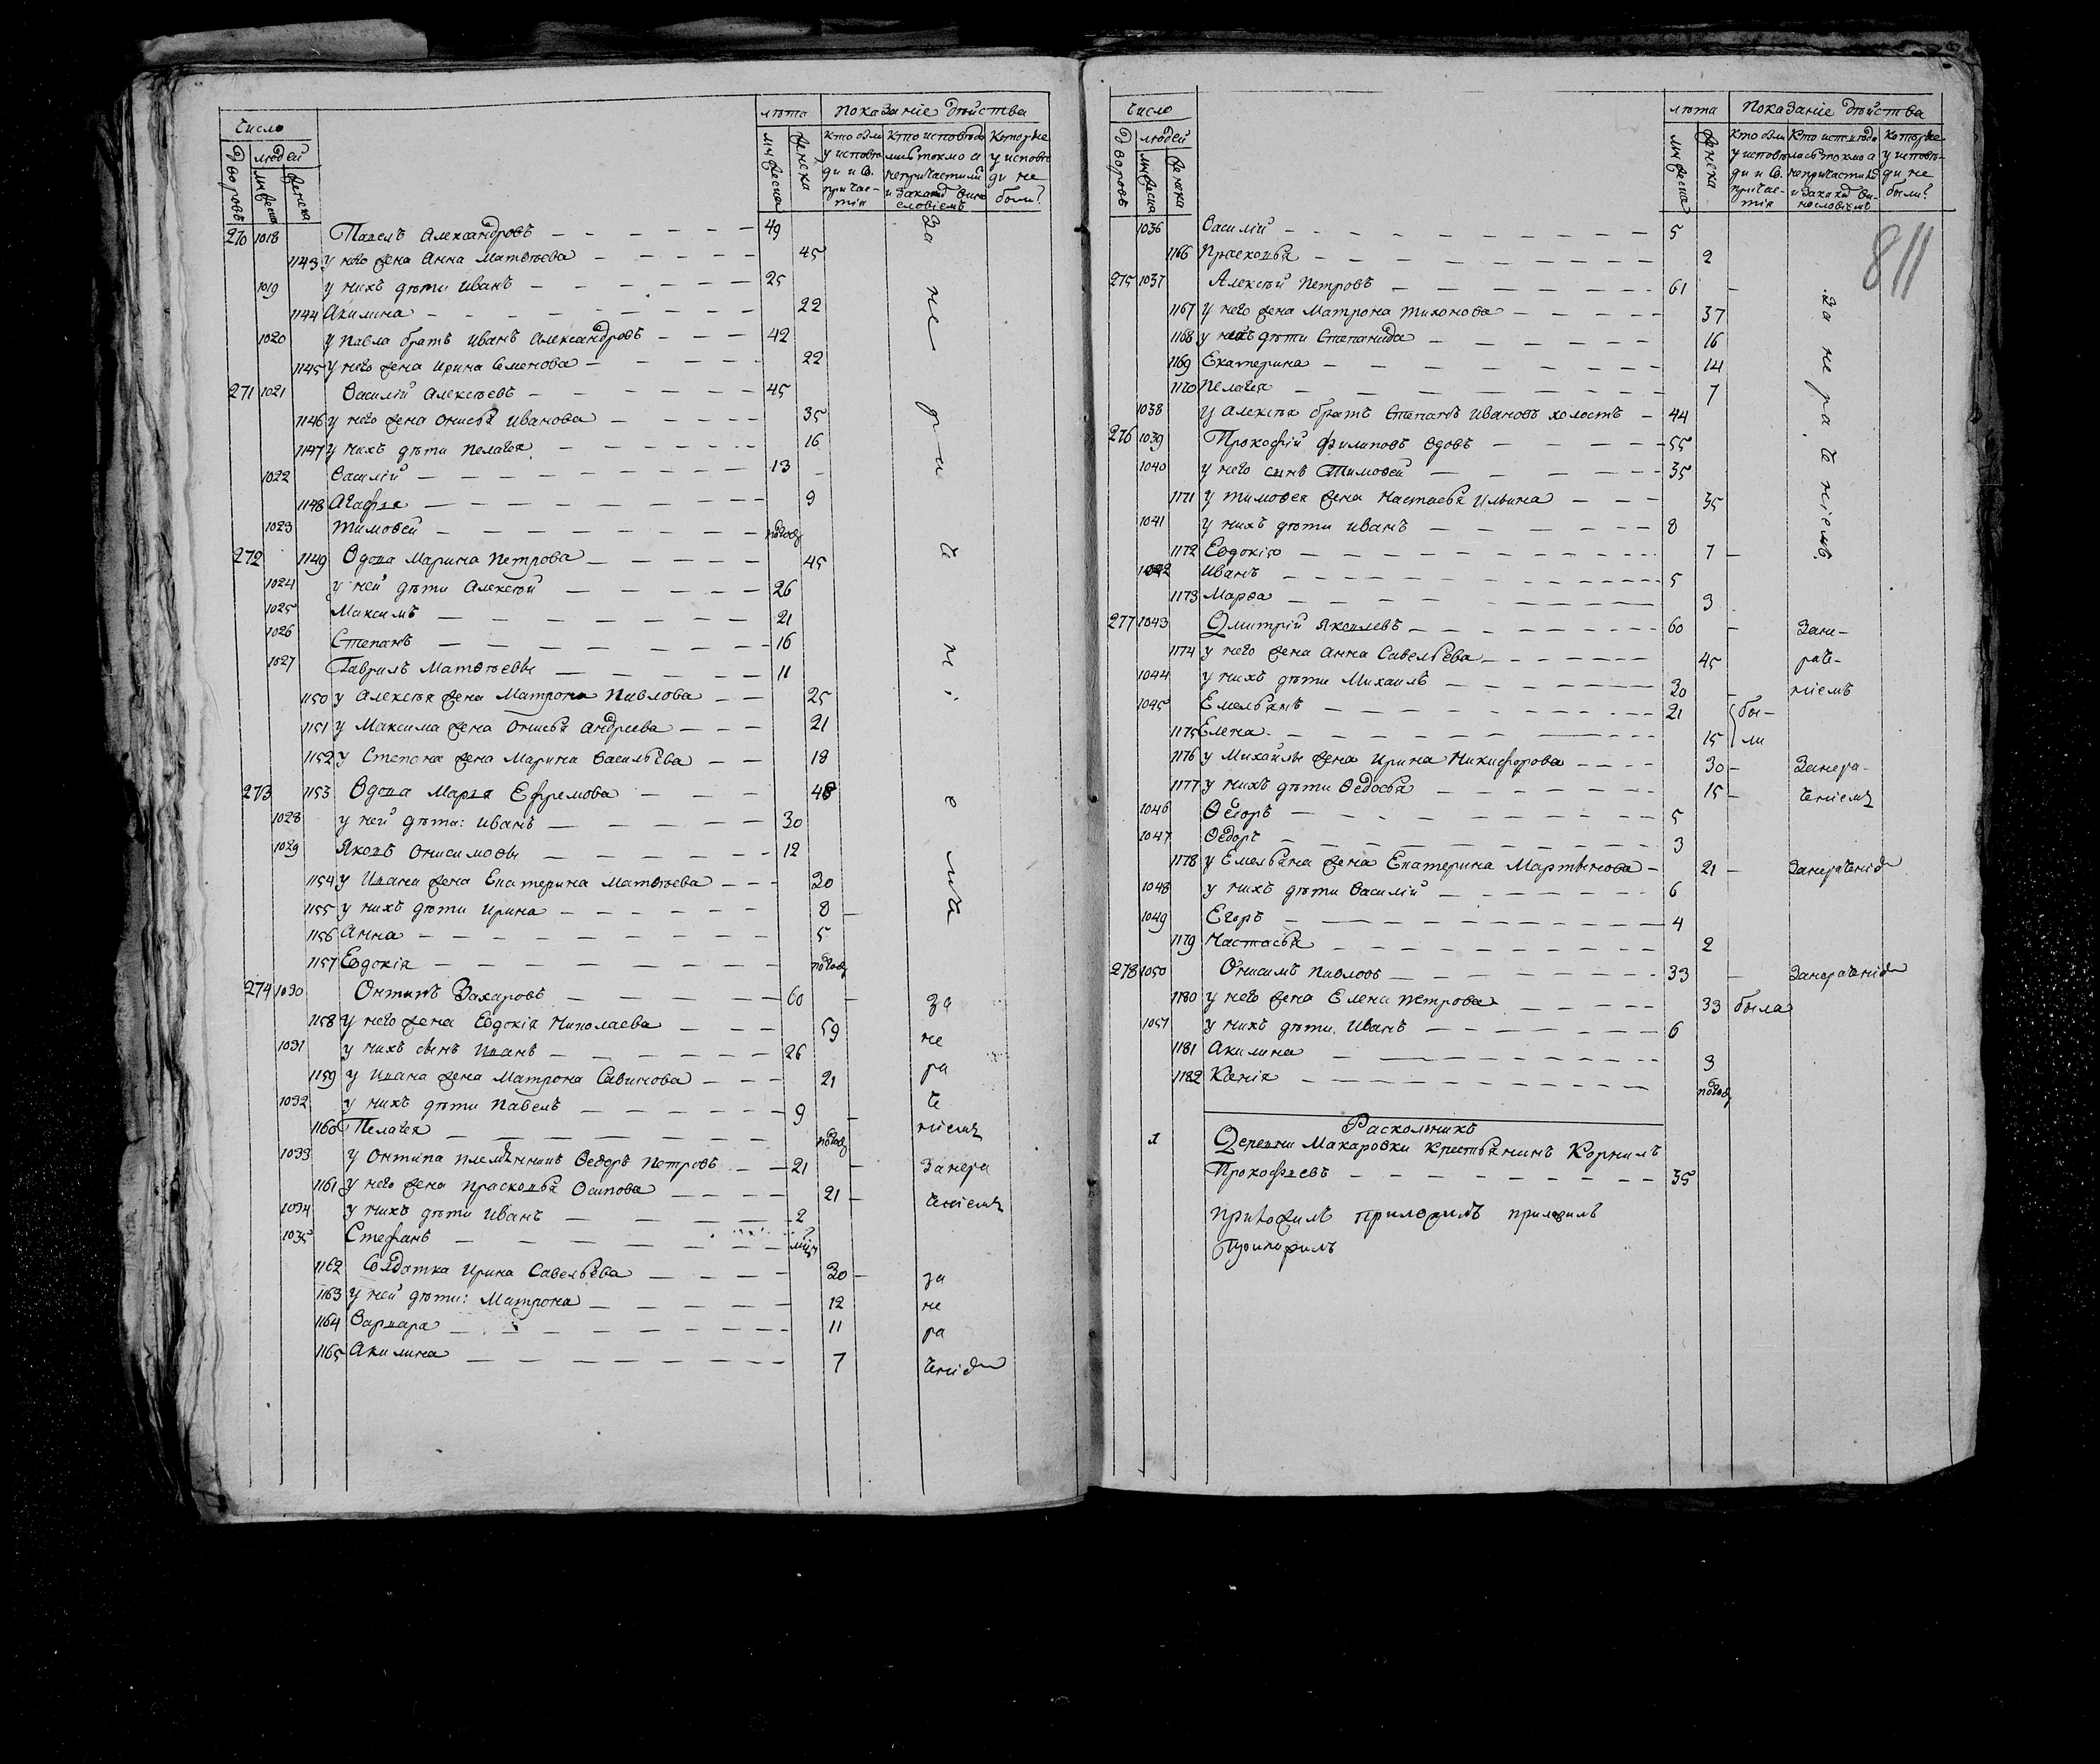 Число
лѣта Показанiе дѣйства
Дворовъ людей мужеска женска
мужеска женска
Кто были у исповѣди и св. причастiя
кто исповѣдались токмо а непричастились и закакимъ винословiемъ
Которые у исповѣди не были?
270 1018 Павелъ Александровъ 49
1143 у него жена Анна Матвѣева 45
1019 у нихъ дѣти Иванъ 25
1144 Акилина 22
1020 у Павла братъ Иванъ Александровъ 42
1145 у него жена Ирина Семенова 22
271 1021 Василiй Алексѣевъ 45
1146 у него жена Онисья Иванова 35
1147 у нихъ дѣти Пелагея 16
1022 Василiй 13
1148 Агафья 9
1023 Тимоѳей полгоду
272 1149 Вдова Марина Петрова 45
1024 у ней дѣти Алексѣй 26
1025 Максимъ 21
1026 Степанъ 16
1027 Гаврилъ Матвѣевы 11
1150 у Алексѣя жена Матрона Павлова 25
1151 у Максима жена Онисья Андреева 21
1152 у Степана жена Марина Васильева 18
273 1153 Вдова Марѳа Ефремова 48
1028 у ней дѣти: Иванъ 30
1029 Яковъ Онисимовы 12
1154 у Ивана жена Екатерина Матвѣева 30
1155 у нихъ дѣти Ирина 8
1156 Анна 5
1157 Евдокiя полгоду
За нераченiемъ
274 1030 Онтипъ Захаровъ 60 за
1158 у него жена Евдокiя Николаева 59 не
1031 у нихъ сынъ Иванъ 26
1159 у Ивана жена Матрона Савинова 21 ра
1032 у нихъ дѣти Павелъ 9 че
1160 Пелагея полгоду нiемъ
1033 у Онтипа племянникъ Ѳедоръ Петровъ 21 Занера
1161 у него жена Прасковья Осипова 21 ченiемъ
1034 у нихъ дѣти Иванъ 2
1035 Стефанъ
1162 Солдатка Ирина Савельева 30 за
1163 у ней дѣти: Матрона 12 не
1164 Варвара 11 ра
1165 Акилина 7 ченiемъ
Число
лѣта Показанiе дѣйства
Дворовъ людей мужеска женска
мужеска женска
Кто были у исповѣди и св. причастiя
Кто исповѣдались токмо а непричастились и закакимъ винословiемъ
которые у исповѣди не были?
811
1036 Василiй 5
1166 Прасковья 2
275 1037 Алексѣй Петровъ 61
1167 у него жена Матрона Тихонова 37
1168 у нихъ дѣти Степанида 16
1169 Екатерина 14
1170 Пелагея 7
1038 У Алексѣя братъ Степанъ Ивановъ холостъ 44
276 1039 Прокофiй Филиповъ вдовъ 55
1040 у него сынъ Тимоѳей 35
1171 у Тимоѳея жена Настасья Ильина 35
1041 у нихъ дѣти Иванъ 8
1172 Евдокiя 7
1042 Иванъ 5
1173 Марѳа 3
за нераченiемъ
277 1043 Дмитрiй Яковлевъ 60 Зане-
1174 у него жена Анна Савельева 45 раче-
1044 у нихъ дѣти Михаилъ 30 нiемъ
1045 Емельянъ 21 бы-
1175 Елена 15 ли
1176 у Михайлы жена Ирина Никифорова 30 Занера-
1177 у нихъ дѣти Ѳедосья 15 ченiемъ
1046 Ѳедоръ 5
1047 Ѳедоръ 3
1178 у Емельяна жена Екатерина Мартынова 21 Занераченiемъ
1048 у нихъ дѣти Василiй 6
1049 Егоръ 4
1179 Настасья 2
278 1050 Онисимъ Павловъ 33 Занераченiемъ
1180 у него жена Елена Петрова 33 была
1051 у нихъ дѣти Иванъ 6
1181 Акилина 3
1182 Ксенiя полгоду
Раскольникъ
1 Деревни Макаровки крестьянинъ Корнилъ
Прокофьевъ 35
приложилъ приложилъ приложилъ
Приложилъ